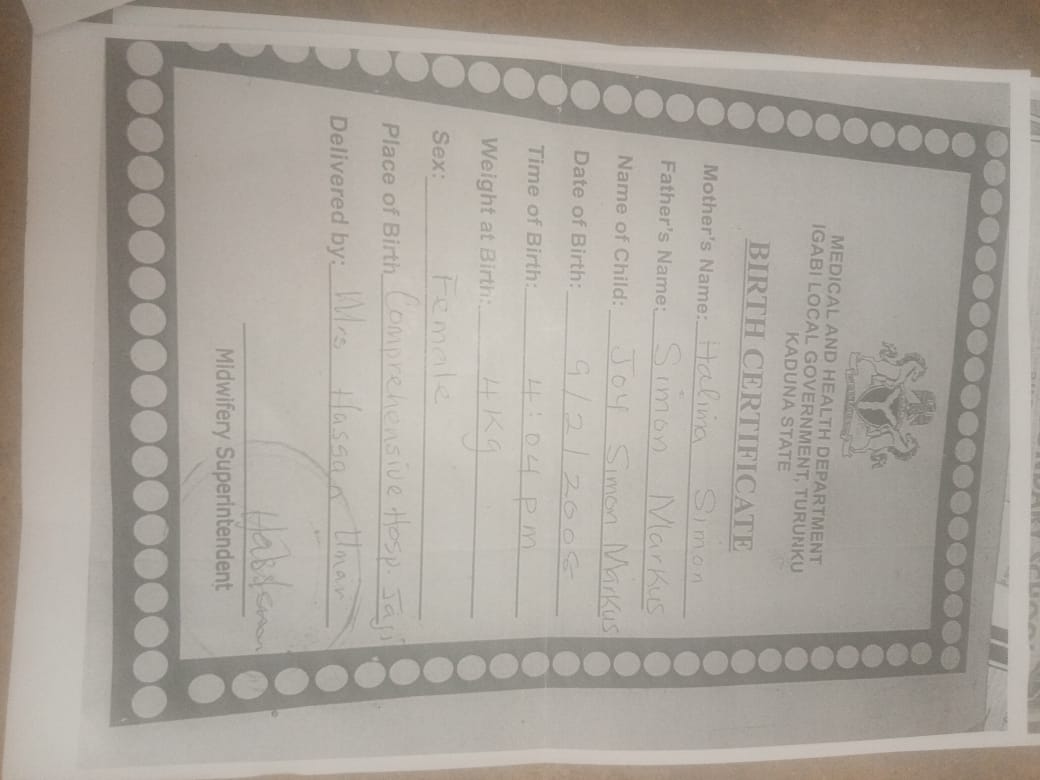 MEDICAL AND HEALTH DEPARTMENT
IGABI LOCAL GOVERNMENT, TURUNKU
KADUNA STATE
BIRTH CERTIFICATE
Mother's Name: Halima Simon
Father's Name: Simon Markus
Name of Child: Joy Simon Markus
Date of Birth: 9/2/2006
Time of Birth: 4:04 pm
Weight at Birth: 4Kg
Sex: Female
Place of Birth Comprehensive Hosp. Jaji
Delivered by: Mrs Hassan Umar
Midwifery Superintendent